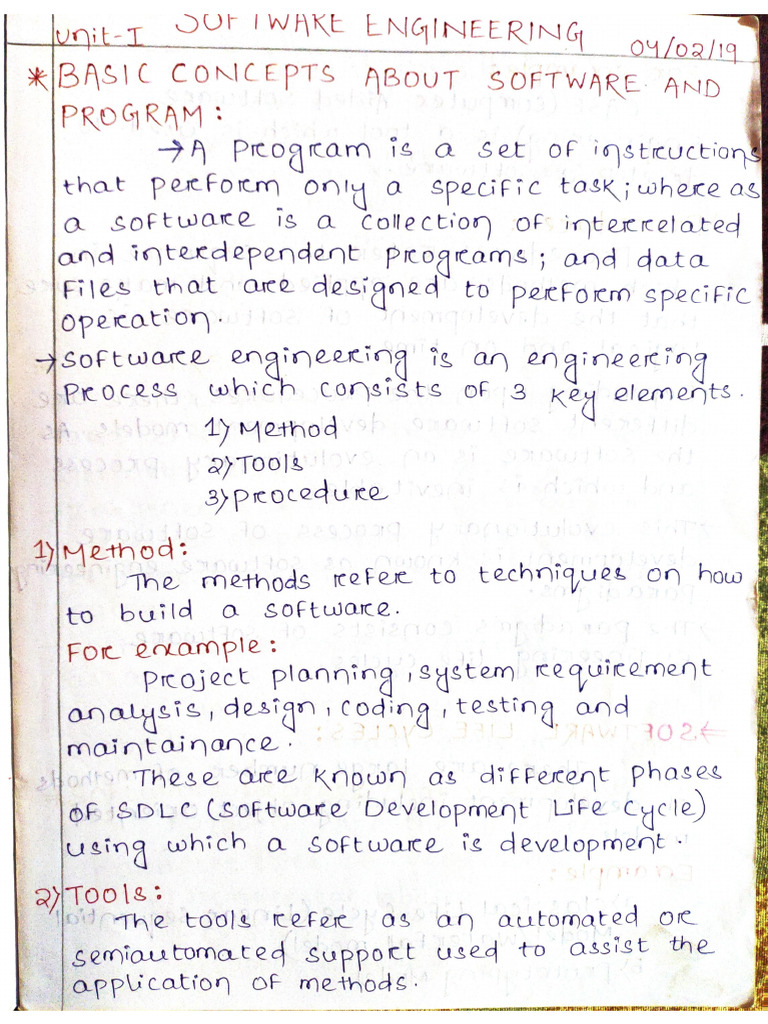 Unit-I SOFTWARE ENGINEERING 04/02/19
* BASIC CONCEPTS ABOUT SOFTWARE AND
PROGRAM:
→ A program is a set of instructions
that perform only a specific task; where as
a software is a collection of interrelated
and interdependent programs; and data
files that are designed to perform specific
operation.
→ Software engineering is an engineering
process which consists of 3 key elements.
1) Method
2) Tools
3) procedure
1) Method:
The methods refer to techniques on how
to build a software.
For example:
Project planning, system requirement
analysis, design, coding, testing and
maintainance.
These are known as different phases
of SDLC (Software Development Life Cycle)
using which a software is development.
2) Tools:
The tools refer as an automated or
semiautomated support used to assist the
application of methods.